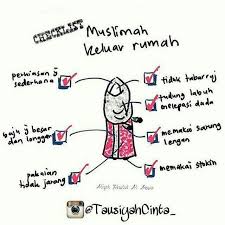 CHECKLIST
Muslimah
keluar rumah
perhiasan yg
sederhana
baju yg besar
dan longgar
pakaian
tidak jarang
tidak tabarruj
tudung labuh
melepasi dada
memakai sarung
lengan
memakai stokin
@TausiyahCinta_